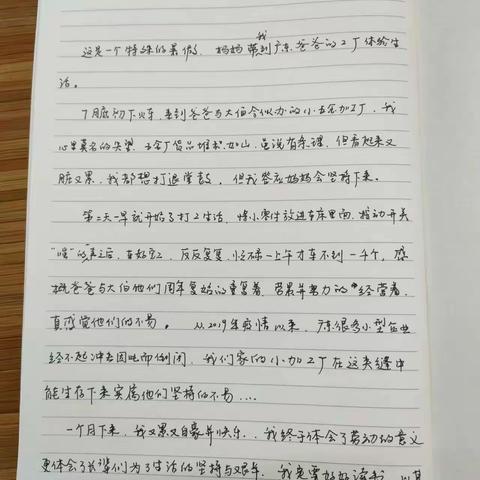 这是一个特殊的暑假，妈妈带我到广东爸爸的工厂体验生
活。
7月底初下火车，来到爸爸与大伯合伙办的小五金加工厂，我
心里莫名的失望，五金厂货品堆积如山，虽说有条理，但看起来又
脏又累，我都想打退堂鼓，但我答应妈妈会坚持下来。
第二天一早就开始了打工生活，将小零件放进车床里面，按动开关
"嗑"的声之后，车好它，反反复复，忙碌一上午才车不到一千个，感
概爸爸与大伯他们周年复始的重复着，劳累并努力的经营着，
真感觉他们的不易。从2019年疫情以来，广东很多小型企业
经不起冲击因此而倒闭，我们家的小加工厂在这夹缝中
能生存下来实属他们坚持的不易....
一个月下来，我又累又自豪并快乐..我终于体会了劳动的意义
更体会了父辈们为了生活的坚持与艰辛，我更要好好读书，以其